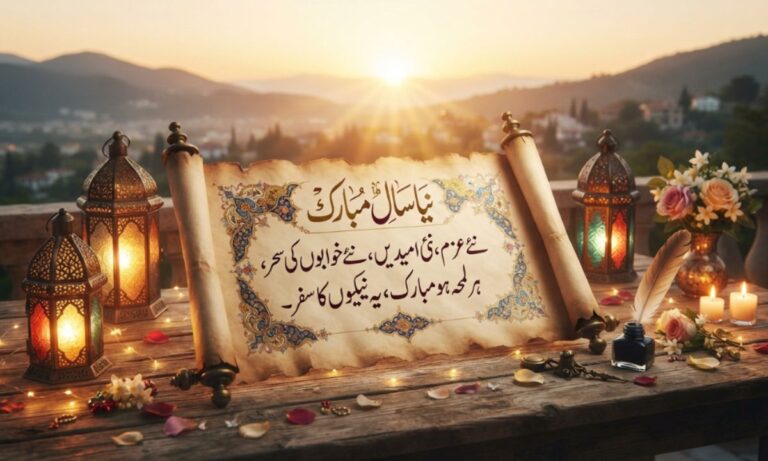 نیا سال مُبارک
نئے عزم، نئی امیدیں، نئے خوابوں کی سحر،
ہر لمحہ ہو مبارک، یہ نیکیوں کا سفر۔